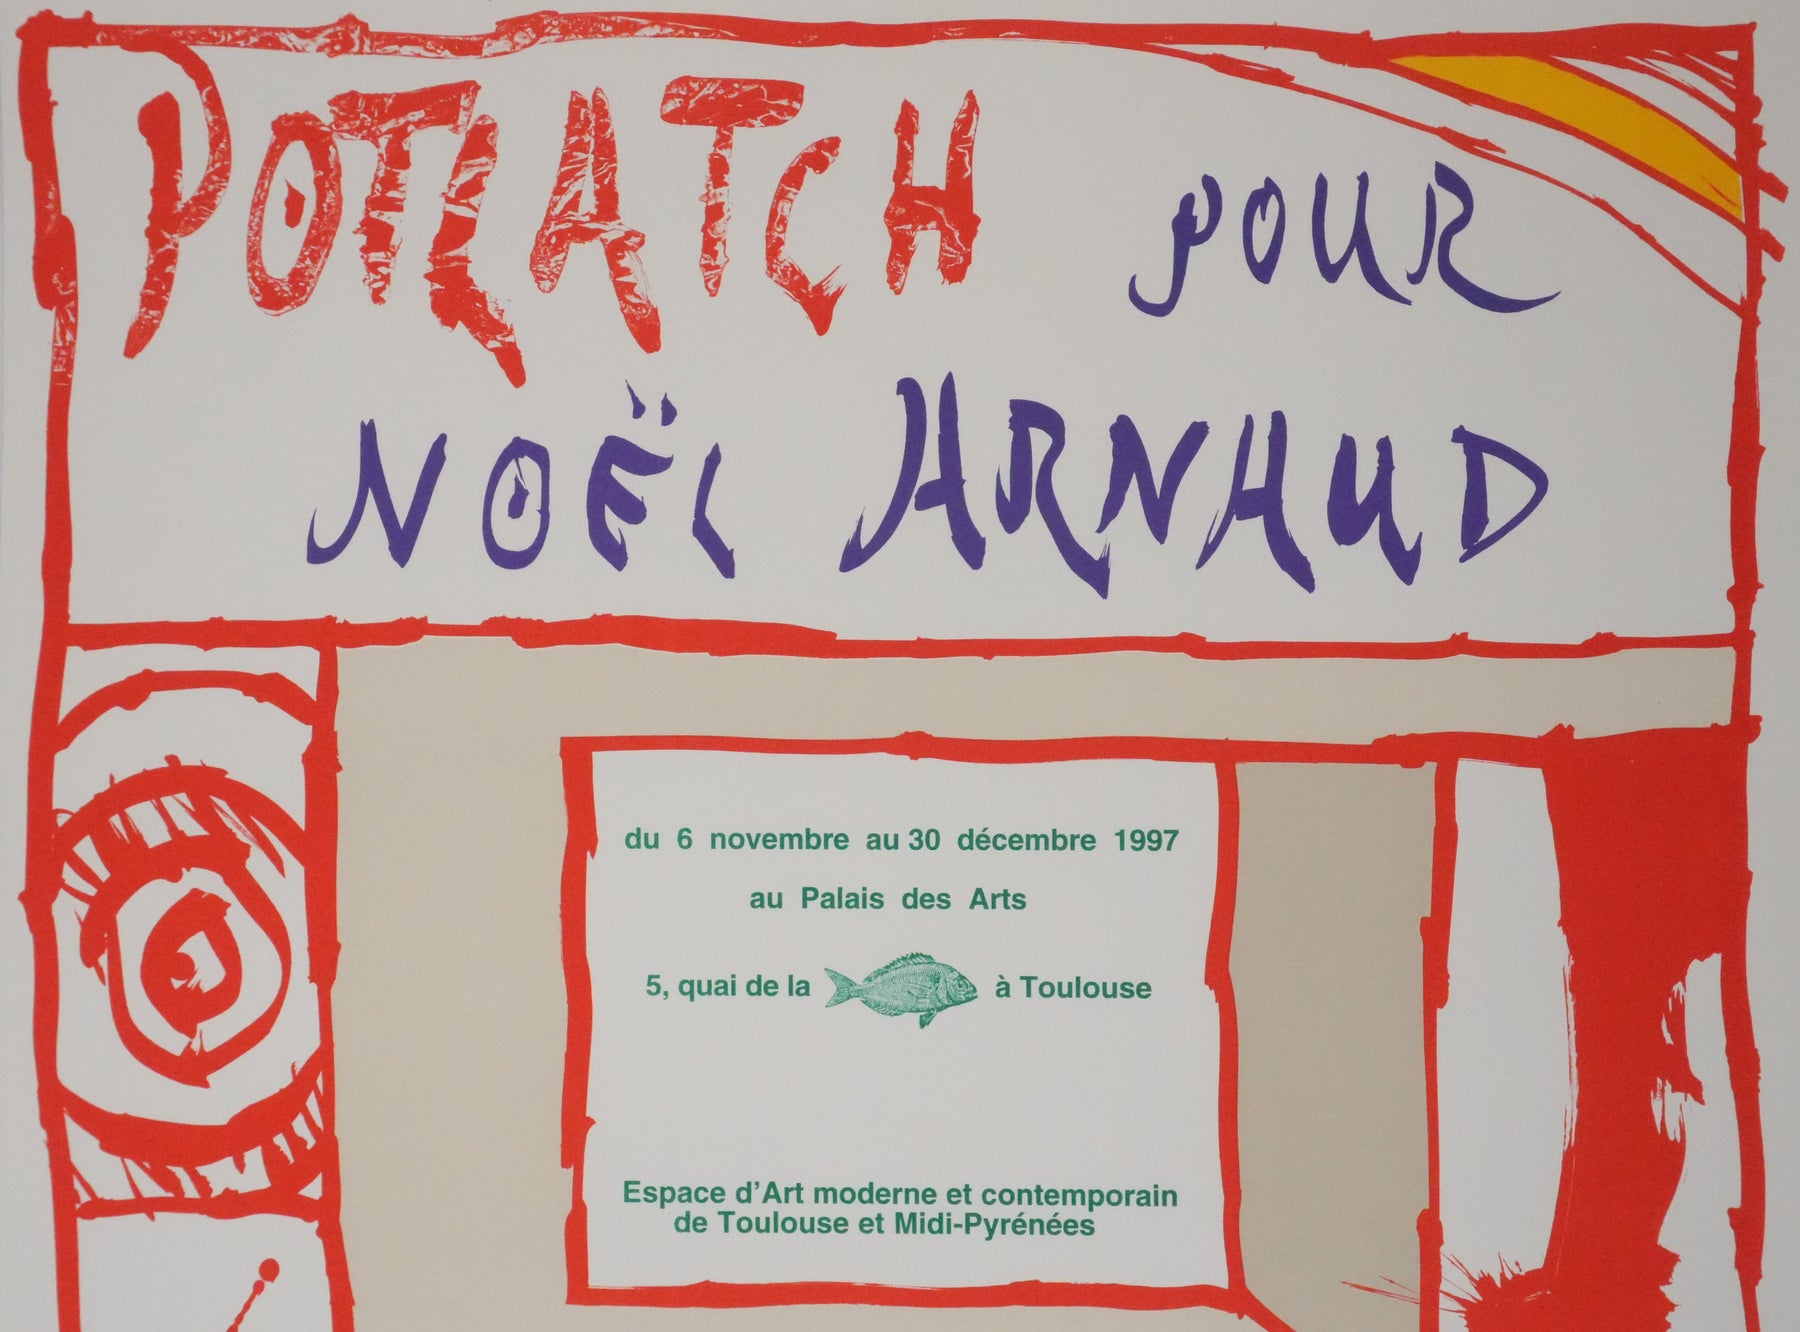 POTLATCH POUR
NOËL ARNAUD
du 6 novembre au 30 décembre 1997
au Palais des Arts
5, quai de la à Toulouse
Espace d'Art moderne et contemporain
de Toulouse et Midi-Pyrénées